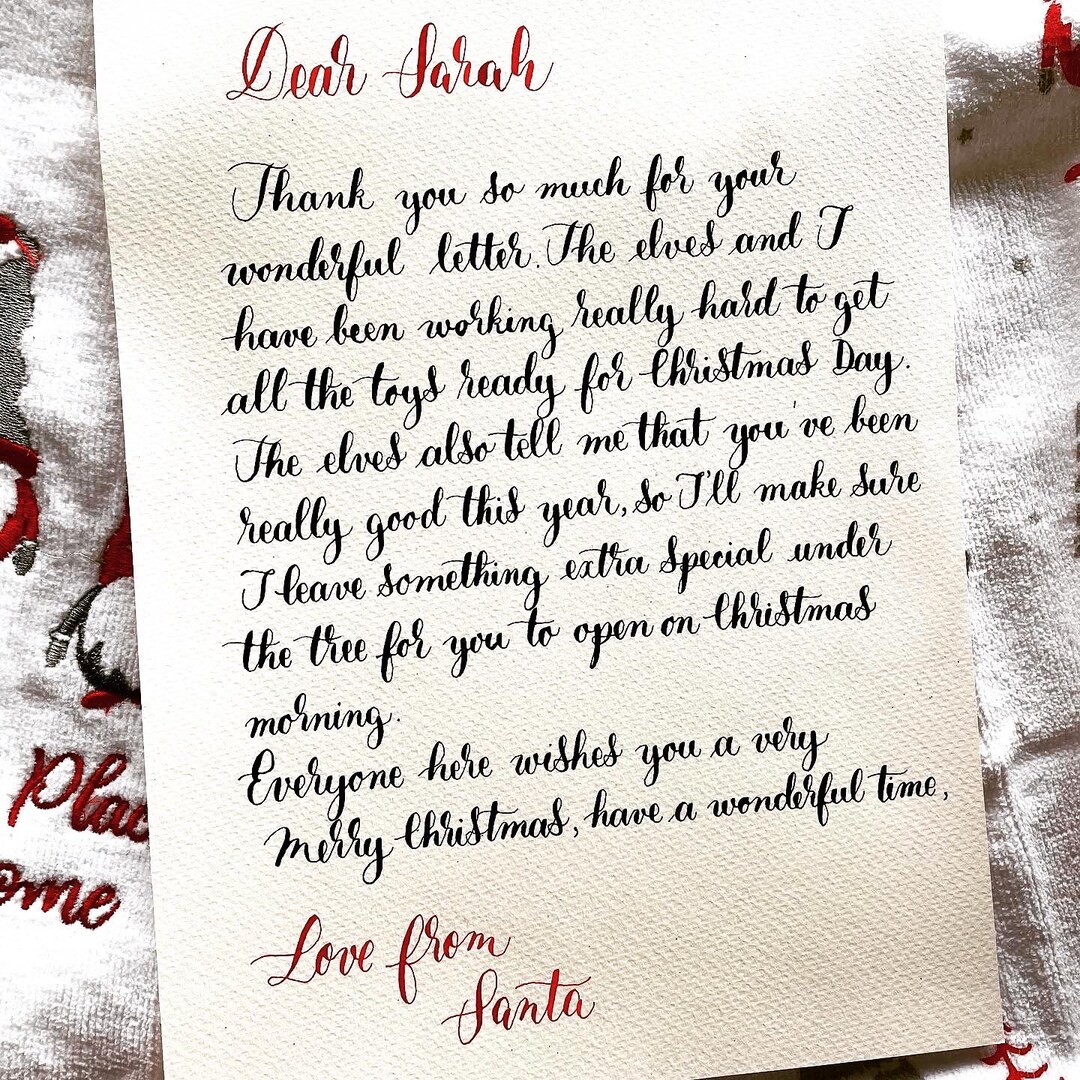 Dear Sarah
Thank you so much for your
wonderful letter. The elves and I
have been working really hard to get
all the toys ready for Christmas Day.
The elves also tell me that you've been
really good this year, so I'll make sure
I leave something extra special under
the tree for you to open on Christmas
morning.
Everyone here wishes you a very
Merry Christmas, have a wonderful time,
Love from
Santa